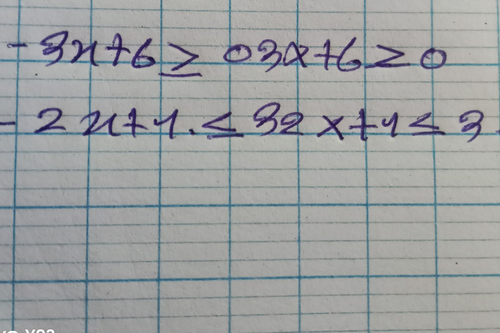 - 3x+6 ≥ 03x+6 ≥ 0
- 2x+1. ≤ 32x+1 ≤ 3